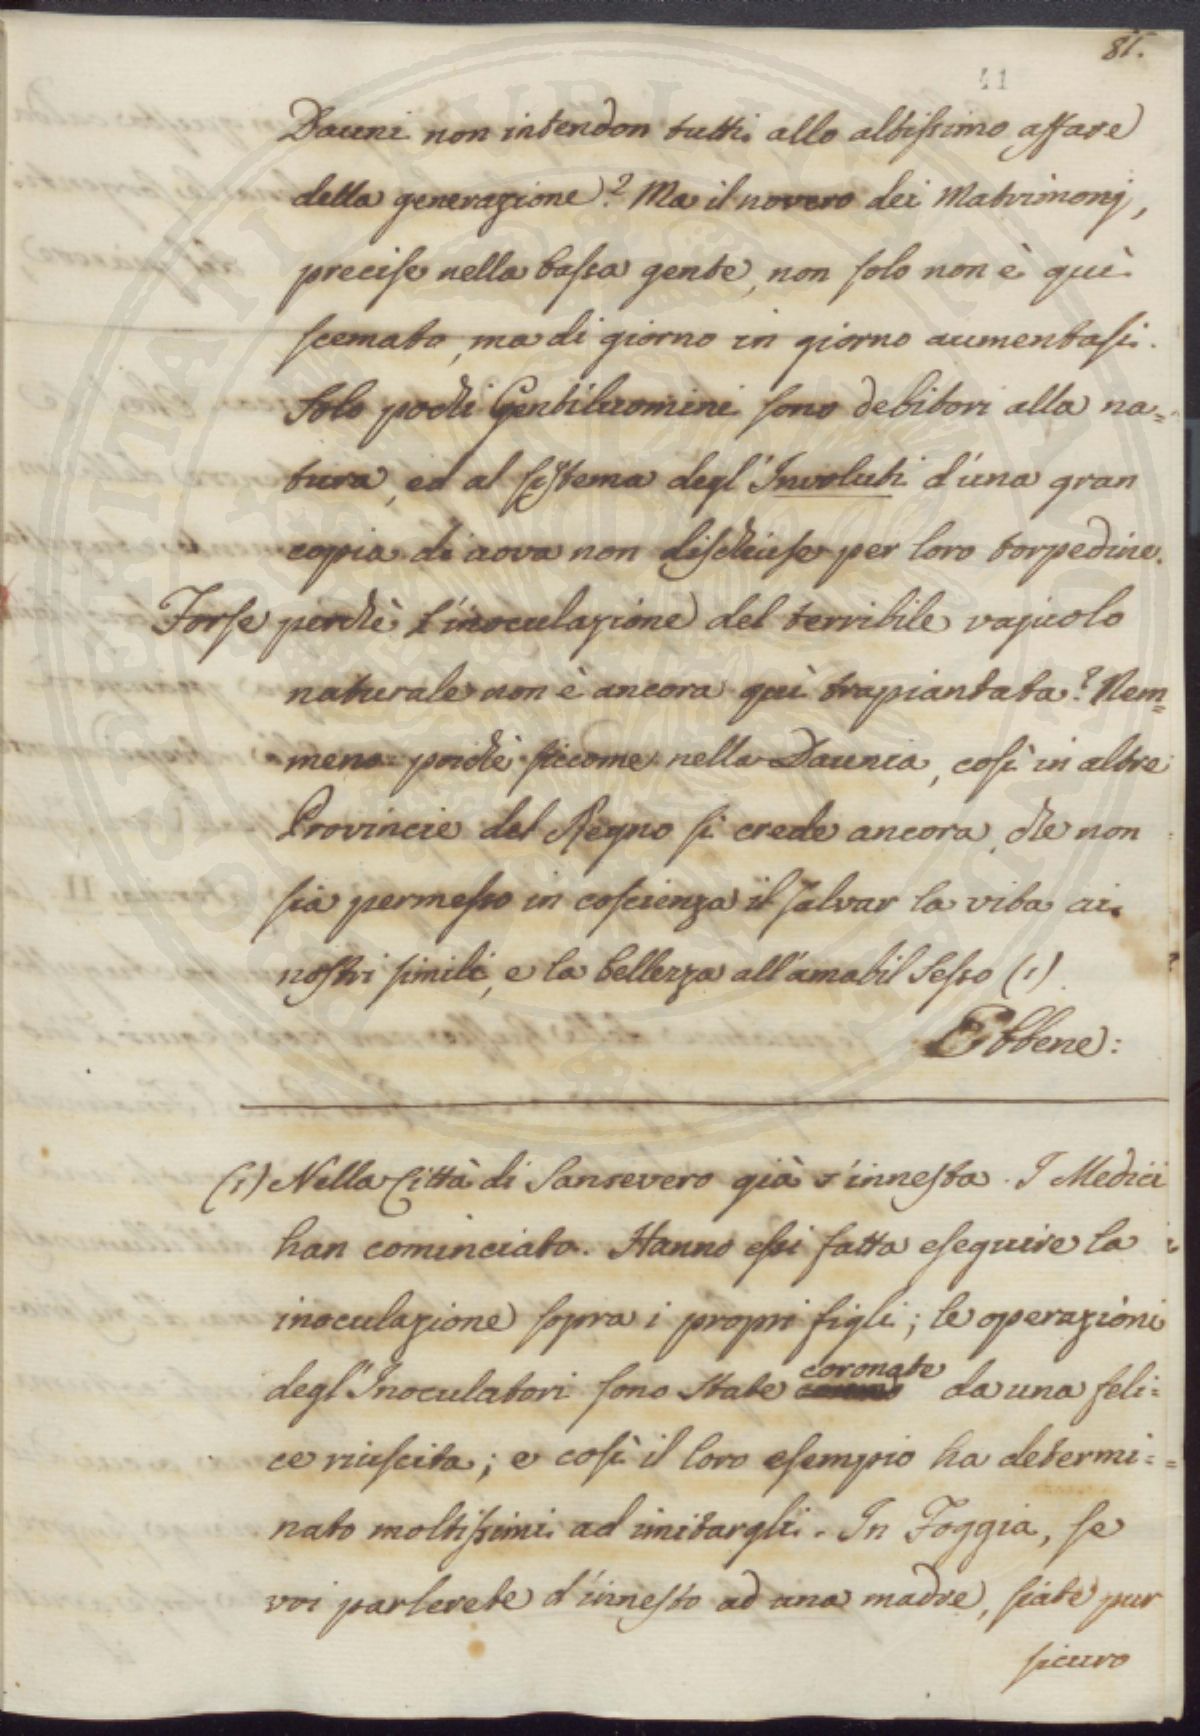 81.
41
Dauni non intendon tutti allo altissimo affare
della generazione? Ma il novero dei Matrimonj,
precise nella bassa gente, non solo non è quì
scemato, ma di giorno in giorno aumentasi.
Solo pochi Gentiluomini sono debitori alla na=
tura, ed al sistema degl'Involuti d'una gran
copia di aova non dischiuse per loro torpedine.
Forse perchè l'inoculazione del terribile vajuolo
naturale non è ancora quì trapiantata? Nem=
meno: poichè siccome nella Daunia, così in altre
Provincie del Regno si crede ancora, che non
sia permesso in coscienza il salvar la vita ai
nostri simili, e la bellezza all'amabil Sesso (1).
Ebbene:
(1) Nella Città di Sansevero già s'innesta. I Medici
han cominciato. Hanno essi fatta eseguire la
inoculazione sopra i proprj figli; le operazioni
degl'Inoculatori sono state coronate da una feli=
ce riuscita; e così il loro esempio ha determi=
nato moltissimi ad imitargli. In Foggia, se
voi parlerete d'innesto ad una madre, siate pur
sicuro